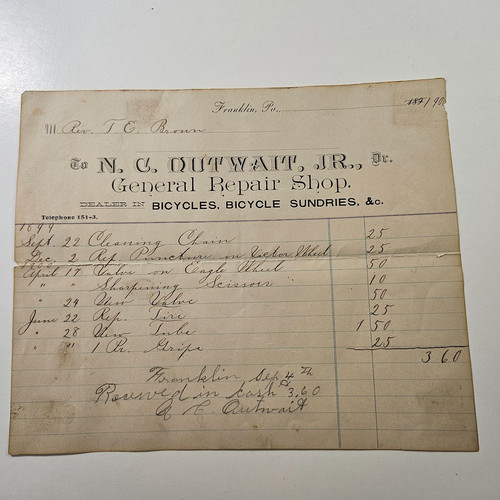 Franklin, Pa., 189/900
M Rev. T. E. Brown
To N. C. OUTWAIT, JR., Dr.
General Repair Shop.
DEALER IN BICYCLES, BICYCLE SUNDRIES, &c.
Telephone 151-3.
1899
Sept. 22 Cleaning Chain 25
Dec. 2 Rep. Puncture in Victor Wheel 25
1900
April 17 Valve on Eagle Wheel 50
" " Sharpening Scissors 10
" 24 New Valve 50
June 22 Rep. Tire 25
" 28 New Tube 1 50
" " 1 Pr. Grips 25
3 60
Franklin Sep 4th
Received in cash 3.60
N C Outwait